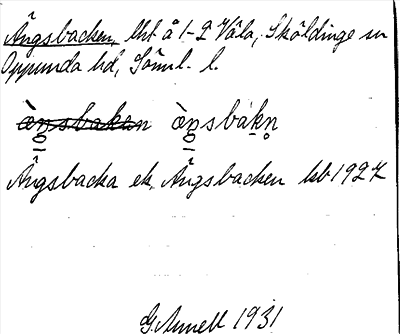 Ängsbacken, lht å 1-2 Våla, Sköldinge sn
Oppunda hd, Söml. l.
àŋsbakan àŋsbákn̥
Ängsbacka ek, Ängsbacken kb 1927
G. Annell 1931